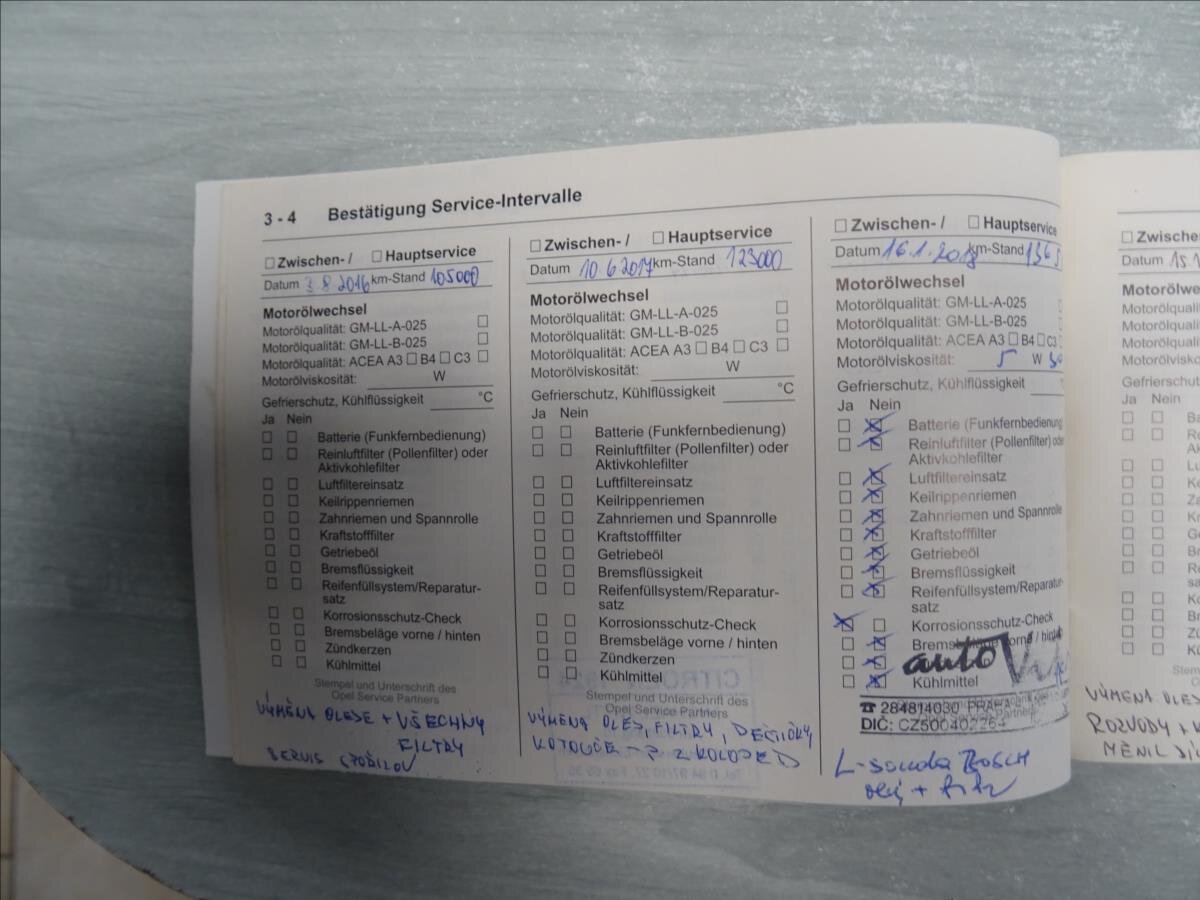 3 - 4 Bestätigung Service-Intervalle
☐ Zwischen- / ☐ Hauptservice
Datum 3 8 2016 km-Stand 105000
Motorölwechsel
Motorölqualität: GM-LL-A-025 ☐
Motorölqualität: GM-LL-B-025 ☐
Motorölqualität: ACEA A3 ☐ B4 ☐ C3 ☐
Motorölviskosität: W
Gefrierschutz, Kühlflüssigkeit °C
Ja Nein
☐ ☐ Batterie (Funkfernbedienung)
☐ ☐ Reinluftfilter (Pollenfilter) oder
Aktivkohlefilter
☐ ☐ Luftfiltereinsatz
☐ ☐ Keilrippenriemen
☐ ☐ Zahnriemen und Spannrolle
☐ ☐ Kraftstofffilter
☐ ☐ Getriebeöl
☐ ☐ Bremsflüssigkeit
☐ ☐ Reifenfüllsystem/Reparatur-
satz
☐ ☐ Korrosionsschutz-Check
☐ ☐ Bremsbeläge vorne / hinten
☐ ☐ Zündkerzen
☐ ☐ Kühlmittel
Stempel und Unterschrift des
Opel Service Partners
VÝMĚNA OLEJE + VŠECHNY
FILTRY
SERVIS SPOŘILOV
☐ Zwischen- / ☐ Hauptservice
Datum 10 6 2017 km-Stand 123000
Motorölwechsel
Motorölqualität: GM-LL-A-025 ☐
Motorölqualität: GM-LL-B-025 ☐
Motorölqualität: ACEA A3 ☐ B4 ☐ C3 ☐
Motorölviskosität: W
Gefrierschutz, Kühlflüssigkeit °C
Ja Nein
☐ ☐ Batterie (Funkfernbedienung)
☐ ☐ Reinluftfilter (Pollenfilter) oder
Aktivkohlefilter
☐ ☐ Luftfiltereinsatz
☐ ☐ Keilrippenriemen
☐ ☐ Zahnriemen und Spannrolle
☐ ☐ Kraftstofffilter
☐ ☐ Getriebeöl
☐ ☐ Bremsflüssigkeit
☐ ☐ Reifenfüllsystem/Reparatur-
satz
☐ ☐ Korrosionsschutz-Check
☐ ☐ Bremsbeläge vorne / hinten
☐ ☐ Zündkerzen
☐ ☐ Kühlmittel
Stempel und Unterschrift des
Opel Service Partners
VÝMĚNA OLEJ, FILTRY, DESTIČKY,
KOTOUČE
☐ Zwischen- / ☐ Hauptservice
Datum 16.1.2018 km-Stand 136
Motorölwechsel
Motorölqualität: GM-LL-A-025
Motorölqualität: GM-LL-B-025
Motorölqualität: ACEA A3 ☐ B4 ☐ C3
Motorölviskosität: 5 W 30
Gefrierschutz, Kühlflüssigkeit
Ja Nein
☐ ☒ Batterie (Funkfernbedienung)
☐ ☒ Reinluftfilter (Pollenfilter) oder
Aktivkohlefilter
☐ ☒ Luftfiltereinsatz
☐ ☒ Keilrippenriemen
☐ ☒ Zahnriemen und Spannrolle
☐ ☒ Kraftstofffilter
☐ ☒ Getriebeöl
☐ ☒ Bremsflüssigkeit
☐ ☒ Reifenfüllsystem/Reparatur-
satz
☒ ☐ Korrosionsschutz-Check
☐ ☒ Bremsbeläge vorne / hinten
☐ ☒
☐ ☒ Kühlmittel
auto
☎ 284814030 PRAHA
DIČ: CZ500402264
L-sonda BOSCH
olej + filtr
☐ Zwischen-
Datum 15.1
Motorölwe
Motorölqua
Motorölqua
Motorölqua
Motorölvisko
Gefriersch
Ja Nein
VÝMĚNA OLEJE
ROZVODY +
MĚNIL